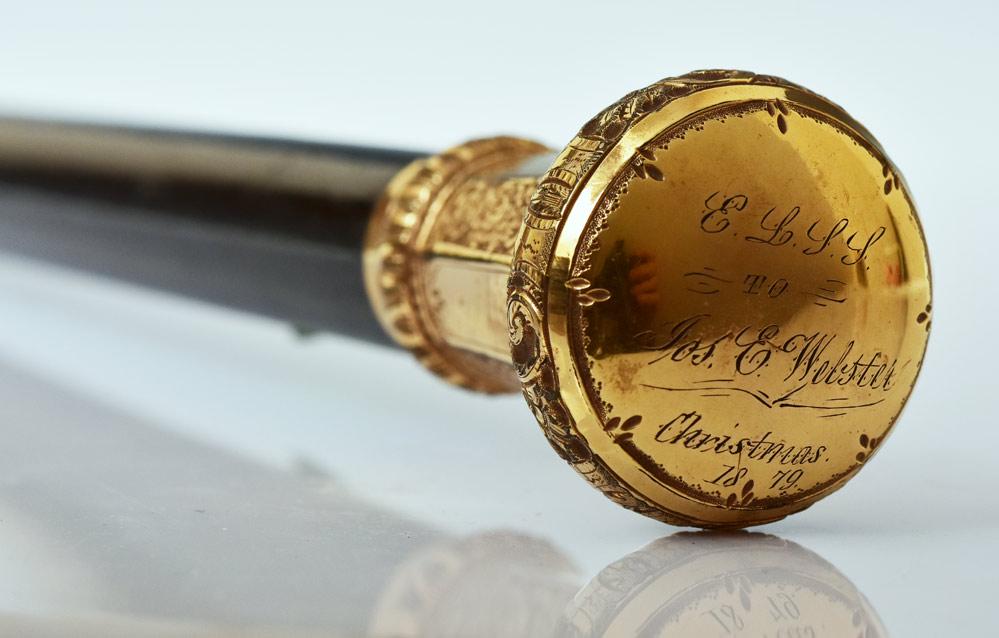 E. L. S. S.
TO
Jos. E. Webster
Christmas.
1879.